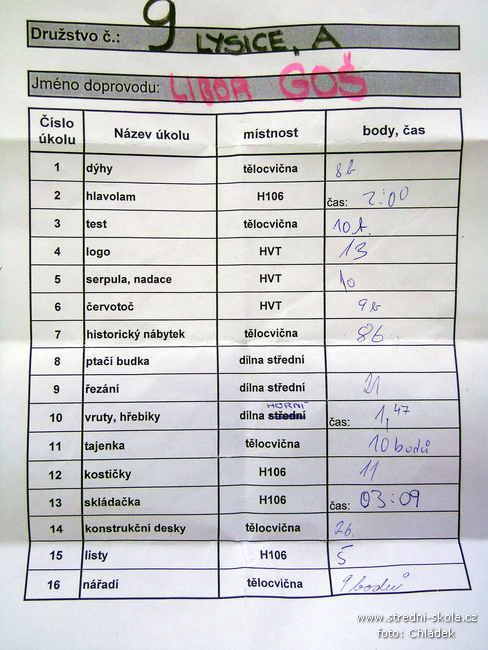 Družstvo č.: 9 LYSICE, A
Jméno doprovodu: LIBOR GOŠ
Číslo úkolu Název úkolu místnost body, čas
1 dýhy tělocvična 8b
2 hlavolam H106 čas: 2:00
3 test tělocvična 10b.
4 logo HVT 13
5 serpula, nadace HVT 10
6 červotoč HVT 9b
7 historický nábytek tělocvična 8b.
8 ptačí budka dílna střední
9 řezání dílna střední 21
HORNÍ
10 vruty, hřebíky dílna střední čas: 1,47
11 tajenka tělocvična 10 bodů
12 kostičky H106 11
13 skládačka H106 čas: 03:09
14 konstrukční desky tělocvična 2b.
15 listy H106 5
16 nářadí tělocvična 9 bodů
www.stredni-skola.cz
foto: Chládek